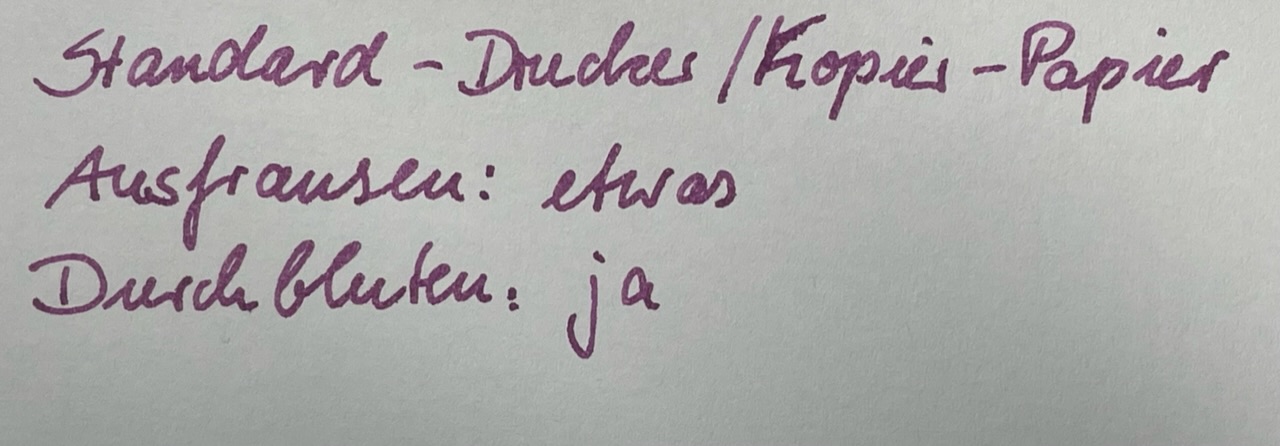 Standard - Drucker / Kopier - Papier
Ausfransen: etwas
Durchbluten: ja